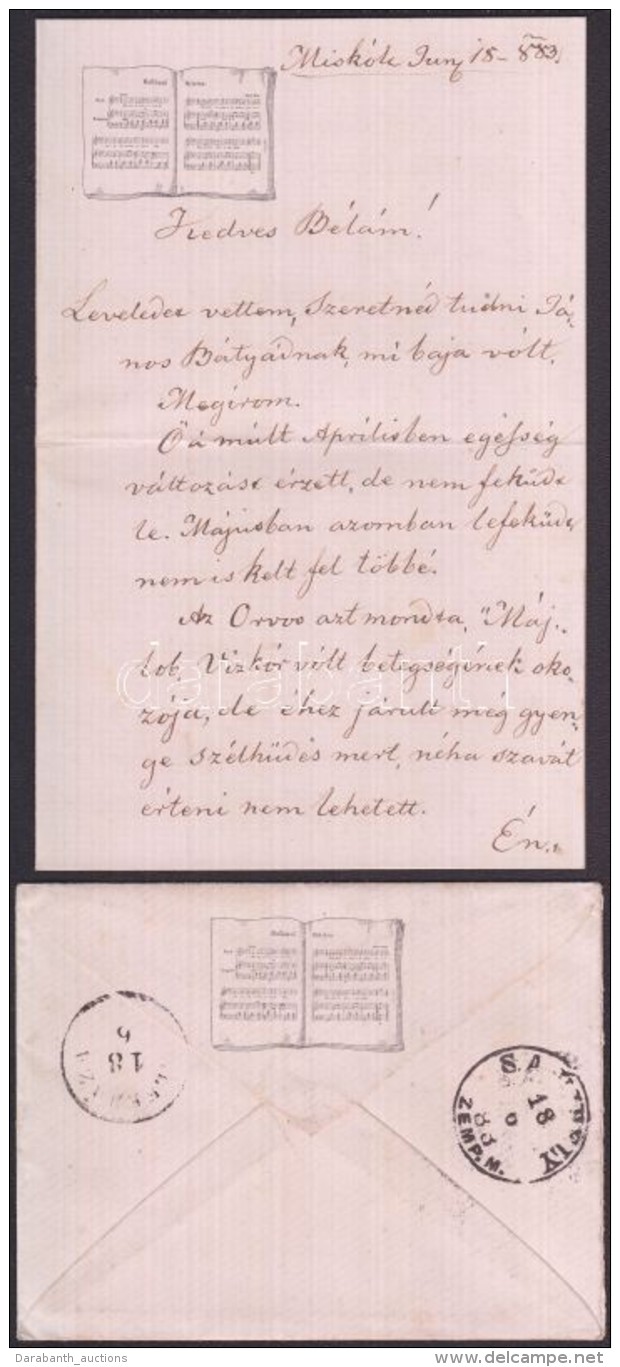 Miskólc Juny 18-883.
Kedves Bélám!
Leveledet vettem, Szeretnéd tudni Já-
nos Bátyádnak, mi baja vólt.
Megírom.
Ő á múlt Áprilisben egésség
változást érzett, de nem feküdt
le. Májusban azomban lefeküdt,
nem is kelt fel többé.
Az Orvos azt mondta, "Máj-
lob, Vizkór vólt betegségének oko-
zója, de éhez járult még gyen-
ge szélhüdés mert, néha szavát
érteni nem lehetett.
Én.
darabanth
18
6
S.A. UJHELY
18
6
83
ZEMP. M.
Darabanth_auctions
delcampe.net